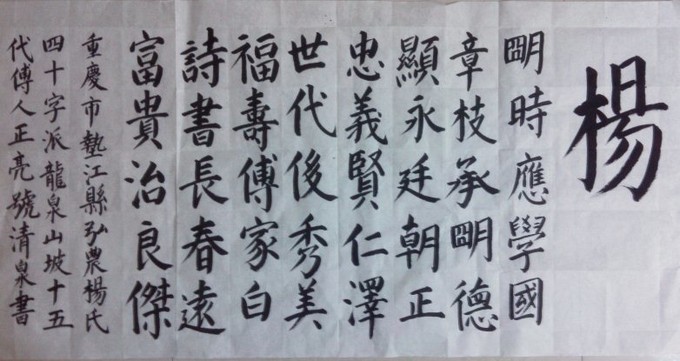 楊
朙時應學國
章枝承朙德
顯永廷朝正
忠義賢仁澤
世代後秀美
福壽傳家白
詩書長春遠
富貴治良傑
重慶市墊江縣弘農楊氏
四十字派龍泉山坡十五
代傳人正亮號清泉書